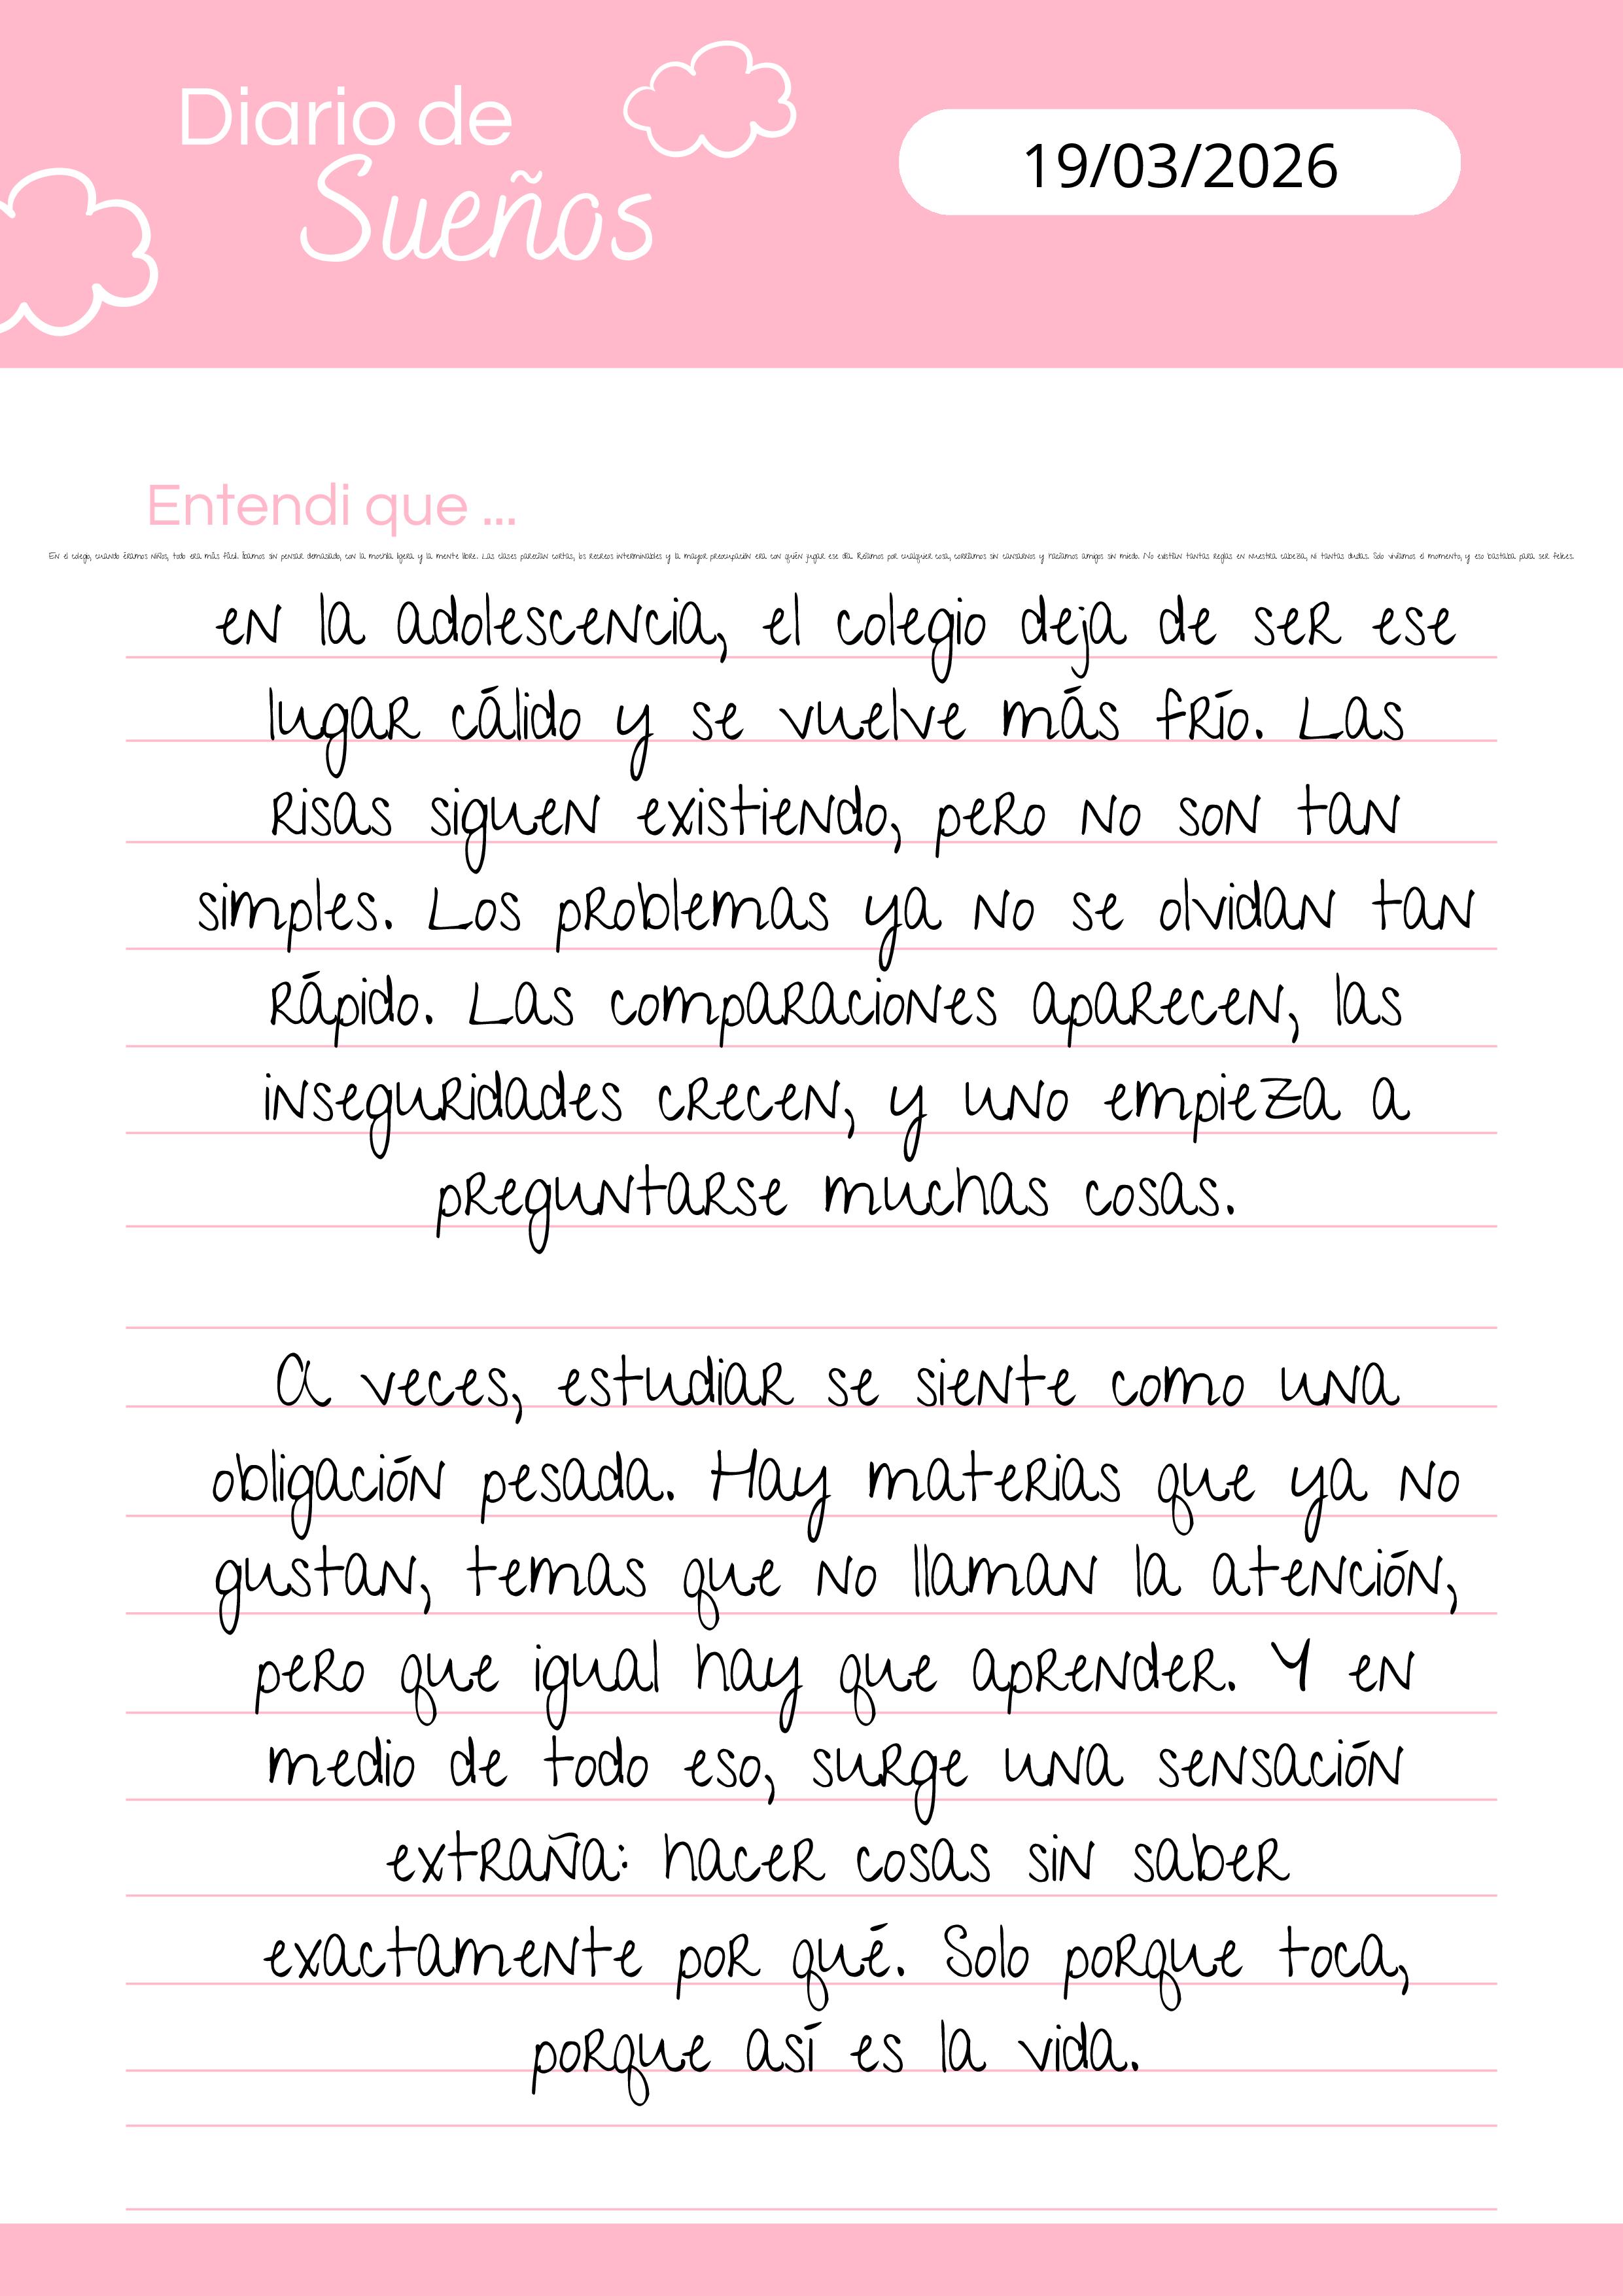 Diario de
Sueños
19/03/2026
Entendi que ...
En el colegio, cuando éramos niños, todo era más fácil. Íbamos sin pensar demasiado, con la mochila ligera y la mente libre. Las clases parecían cortas, los recreos interminables y la mayor preocupación era con quién jugar ese día. Reíamos por cualquier cosa, corríamos sin cansarnos y hacíamos amigos sin miedo. No existían tantas reglas en nuestra cabeza, ni tantas dudas. Solo vivíamos el momento, y eso bastaba para ser felices.
en la adolescencia, el colegio deja de ser ese
lugar cálido y se vuelve más frío. Las
risas siguen existiendo, pero no son tan
simples. Los problemas ya no se olvidan tan
rápido. Las comparaciones aparecen, las
inseguridades crecen, y uno empieza a
preguntarse muchas cosas.
A veces, estudiar se siente como una
obligación pesada. Hay materias que ya no
gustan, temas que no llaman la atención,
pero que igual hay que aprender. Y en
medio de todo eso, surge una sensación
extraña: hacer cosas sin saber
exactamente por qué. Solo porque toca,
porque así es la vida.